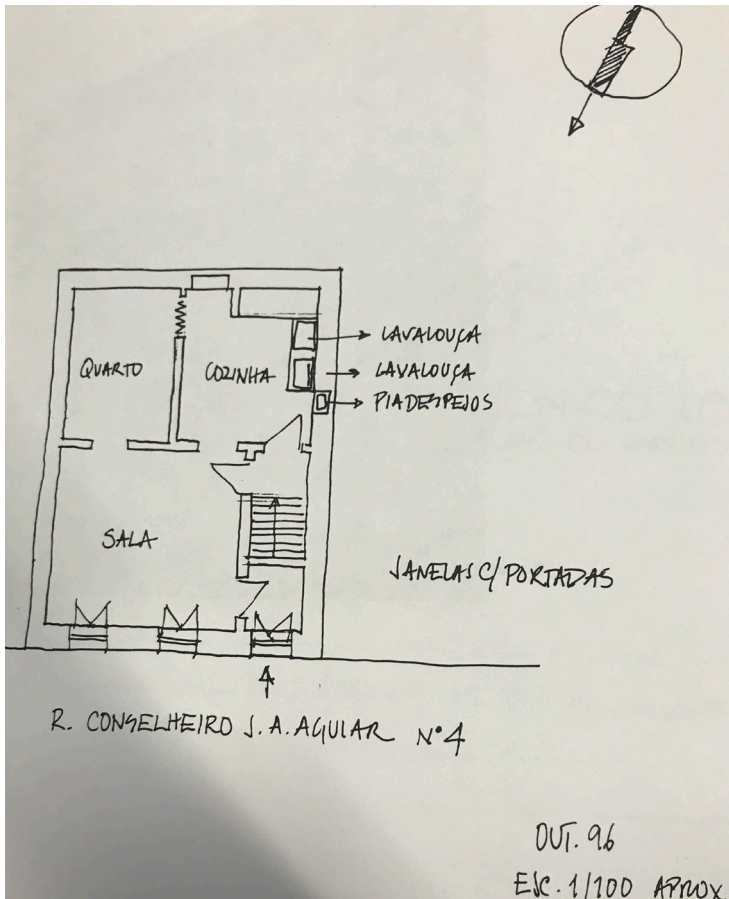 LAVALOUÇA
QUARTO
COZINHA
LAVALOUÇA
PIADESPEJOS
SALA
JANELAS C/ PORTADAS
4
R. CONSELHEIRO J. A. AGUIAR Nº 4
OUT. 96
ESC. 1/100 APROX